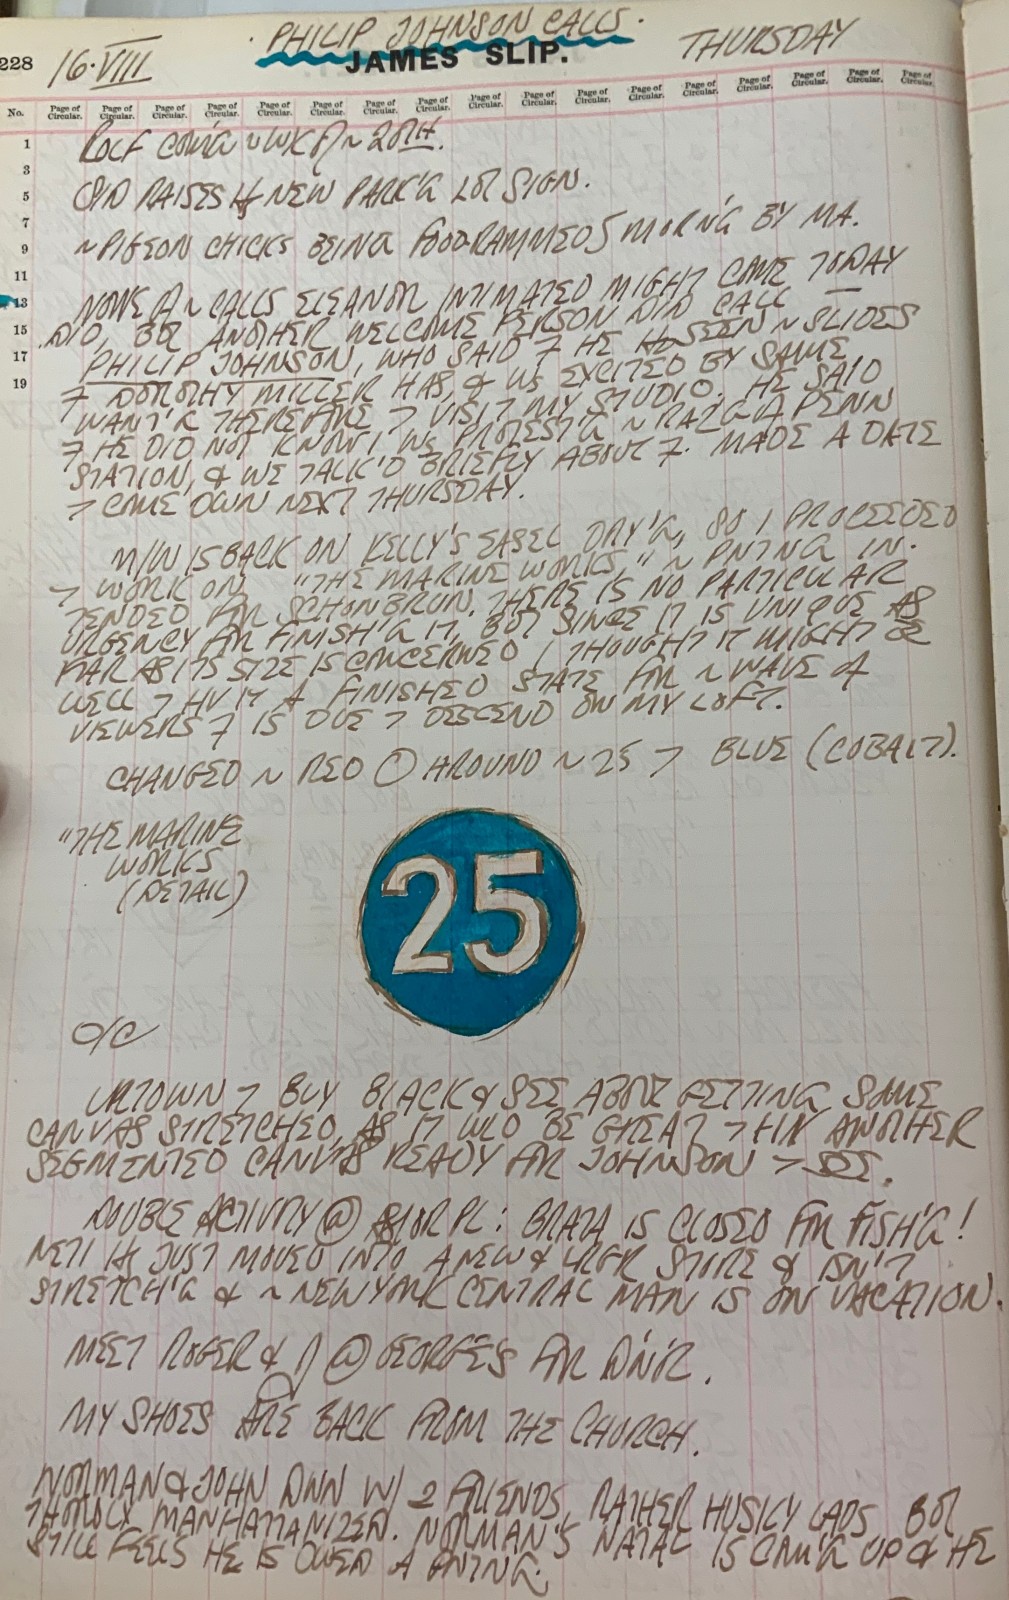 · PHILIP JOHNSON CALLS ·
228 16·VIII JAMES SLIP. THURSDAY
No. Page of Circular. Page of Circular. Page of Circular. Page of Circular. Page of Circular. Page of Circular. Page of Circular. Page of Circular. Page of Circular. Page of Circular. Page of Circular. Page of Circular. Page of Circular. Page of Circular. Page of Circular. Page of Circular. Page of Circular.
1
3
5
7
9
11
13
15
17
19
~ 20TH.
RAISES NEW PARK'G LOT SIGN.
~ PIGEON CHICKS BEING MORN'G BY MA.
NONE ~ CALLS ELEANOR INTIMATED MIGHT COME TODAY
DID, BUT ANOTHER WELCOME PERSON DID CALL
PHILIP JOHNSON, WHO SAID 7 HE SEEN ~ SLIDES
7 DOROTHY MILLER HAS, & WS EXCITED BY SAME
WANT'G THEREFORE > VISIT MY STUDIO. HE SAID
7 HE DID NOT KNOW I WS PROTEST'G ~ RAZ'G PENN
STATION, & WE TALK'D BRIEFLY ABOUT 7. MADE A DATE
> COME DWN NEXT THURSDAY.
M/W IS BACK ON KELLY'S EASEL DRY'G, SO I PROCEEDED
> WORK ON "THE MARINE WORKS," ~ PNTNG IN-
TENDED FOR SCHONBRUN. THERE IS NO PARTICULAR
URGENCY FOR FINISH'G IT, BUT SINCE IT IS UNIQUE AS
FAR AS ITS SIZE IS CONCERNED I THOUGHT IT MIGHT BE
WELL > HV IT A FINISHED STATE FOR ~ WAVE OF
VIEWERS 7 IS DUE > DESCEND ON MY LOFT.
CHANGED ~ RED AROUND ~ 25 > BLUE (COBALT).
"THE MARINE
WORKS
(DETAIL)
25
O/C
UPTOWN > BUY BLACK & SEE ABOUT GETTING SOME
CANVAS STRETCHED, AS IT WLD BE GREAT > HV ANOTHER
SEGMENTED CANVAS READY FOR JOHNSON > SEE.
DOUBLE ACTIVITY @ ASTOR PL: BRATA IS CLOSED FOR FISH'G!
JUST MOVED INTO A NEW & LRGR STORE & ISN'T
STRETCH'G & ~ NEW YORK CENTRAL MAN IS ON VACATION.
MEET ROGER & @ GEORGE'S FOR DN'R.
MY SHOES ARE BACK FROM THE CHURCH.
NORMAN & JOHN DWN W/ 2 FRIENDS, RATHER HUSKY LADS BUT
THOROLY MANHATTANIZED. NORMAN'S NATAL IS COM'G UP & HE
STILL FEELS HE IS OWED A PNTNG.